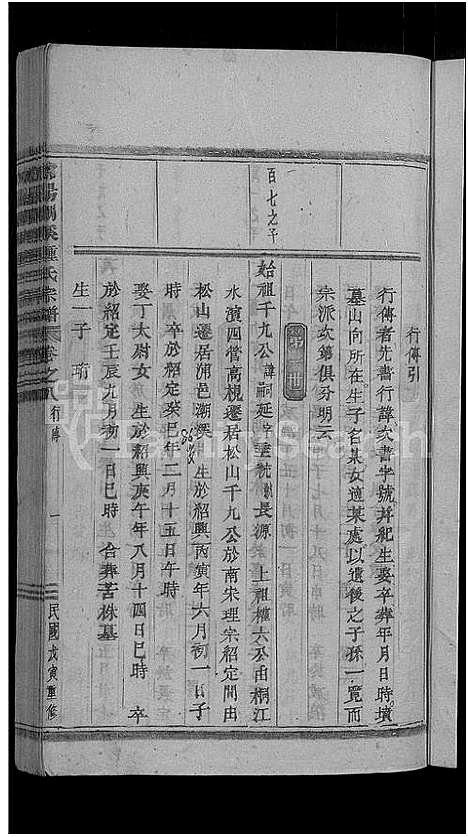 行傳引
行傳者先書行諱次書字號并紀生娶卒葬年月日時墳
墓山向所在生子名某女適某處以遺後之子孫一覽而
宗派次第俱分明云
第一世
百七之子
始祖千九公諱嗣延字垂統號長源 上祖權六公由桐江
水濱四當高梘遷居松山千九公於南宋理宗紹定間由
松山遷居浦邑潮溪 生於紹興丙寅年六月初一日子
時 卒於紹定癸巳年二月十五日午時
86歲
娶丁太尉女 生於紹興庚午年八月十四日巳時 卒
於紹定壬辰九月初一日巳時 合葬苦株墓
生一子 瑜
陽潮溪鍾氏宗譜
卷之
行傳
一
民國戊寅重修
FamilySearch